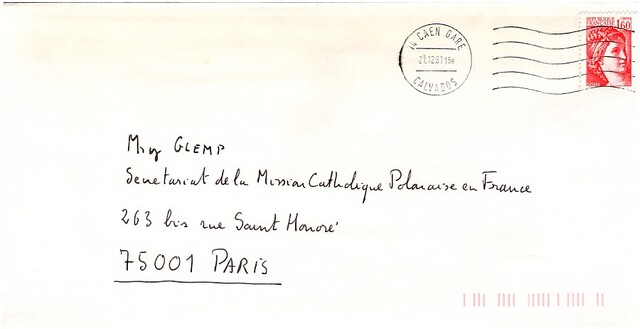 14 CAEN GARE
21.12.81 15H
CALVADOS
REPUBLIQUE
FRANCAISE
1,60
Msg GLEMP
Secretariat de la Mission Catholique Polonaise en France
263 bis rue Saint Honoré
75001 PARIS